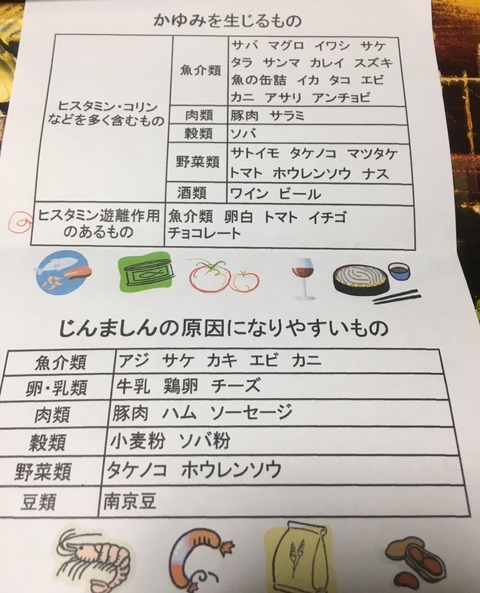 かゆみを生じるもの
ヒスタミン・コリン
などを多く含むもの
魚介類
サバ マグロ イワシ サケ
タラ サンマ カレイ スズキ
魚の缶詰 イカ タコ エビ
カニ アサリ アンチョビ
肉類 豚肉 サラミ
穀類 ソバ
野菜類
サトイモ タケノコ マツタケ
トマト ホウレンソウ ナス
酒類 ワイン ビール
ヒスタミン遊離作用
のあるもの
魚介類 卵白 トマト イチゴ
チョコレート
じんましんの原因になりやすいもの
魚介類 アジ サケ カキ エビ カニ
卵・乳類 牛乳 鶏卵 チーズ
肉類 豚肉 ハム ソーセージ
穀類 小麦粉 ソバ粉
野菜類 タケノコ ホウレンソウ
豆類 南京豆